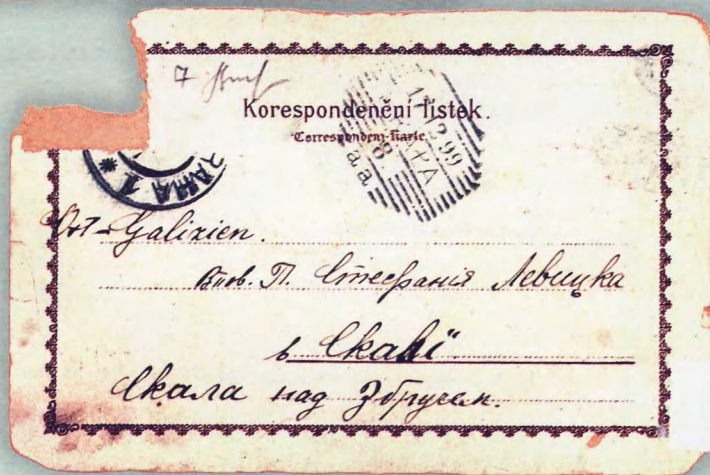 Korespondenční lístek.
Correspondenz-Karte.
PRAHA 1 *
12.2.99
Ost-Galizien.
Впов. П. Стефанія Левицка
в Скалї
Скала над Збручем.